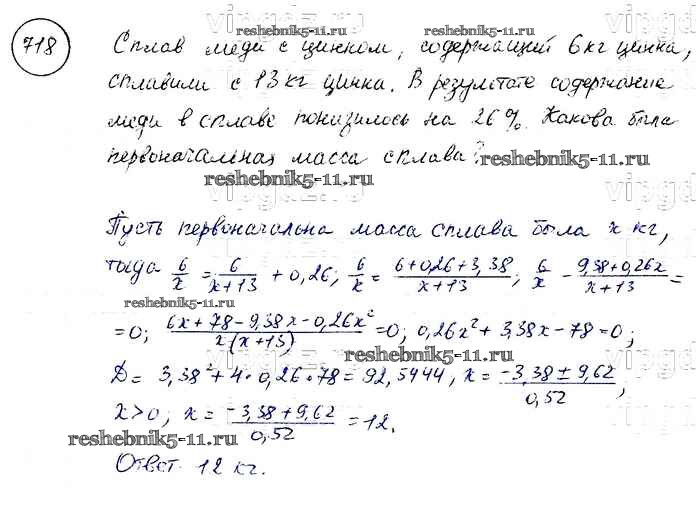 718
Сплав меди с цинком, содержащий 6 кг цинка,
сплавили с 13 кг цинка. В результате содержание
меди в сплаве понизилось на 26%. Какова была
первоначальная масса сплава?
reshebnik5-11.ru
reshebnik5-11.ru
Пусть первоначальна масса сплава была x кг,
тогда 6/x = 6/(x+13) + 0,26; 6/x = (6+0,26+3,38)/(x+13); 6/x - (9,38+0,26x)/(x+13) =
reshebnik5-11.ru
= 0; (6x+78-9,38x-0,26x²)/(x(x+13)) = 0; 0,26x²+3,38x-78=0;
reshebnik5-11.ru
D = 3,38²+4·0,26·78 = 92,5444, x = (-3,38±9,62)/0,52,
x>0; x = (-3,38+9,62)/0,52 = 12.
reshebnik5-11.ru
Ответ. 12 кг.